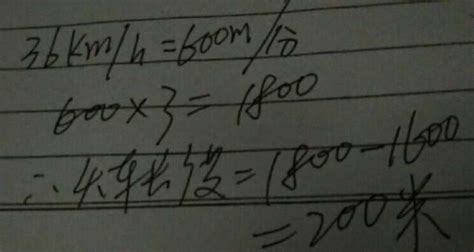 36km/h=600m/分
600×3=1800
∴火车长度=1800-1600
=200米